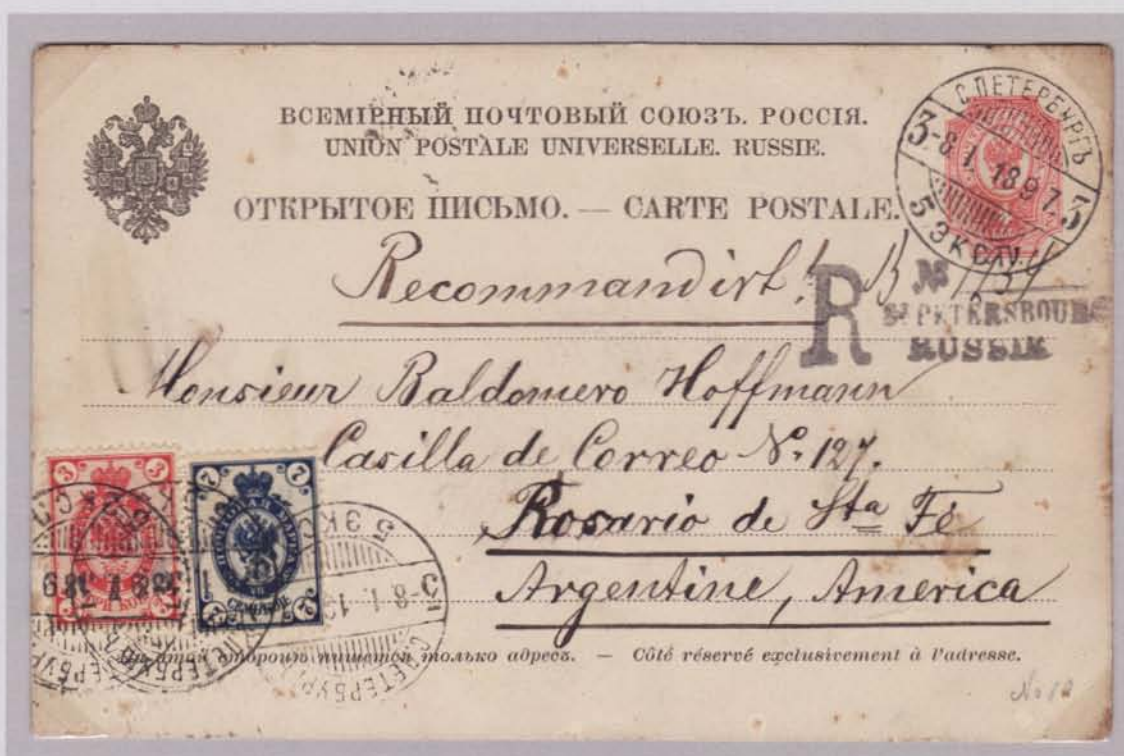 ВСЕМІРНЫЙ ПОЧТОВЫЙ СОЮЗЪ. РОССІЯ.
UNION POSTALE UNIVERSELLE. RUSSIE.
ОТКРЫТОЕ ПИСЬМО. — CARTE POSTALE.
С.ПЕТЕРБУРГЪ
3 -8.1.1897. 3
5 ЭКСП.
Recommandirt!
R №
ST PETERSBOURG
RUSSIE
Monsieur Baldomero Hoffmann
Casilla de Correo No. 127.
Rosario de Sta Fé
Argentine, America
3 3
7 7
СЕМЬ КОП
5 ЭКСП
-8.1.18
С.ПЕТЕРБУРГЪ
На этой сторонѣ пишется только адресъ. — Côté réservé exclusivement à l'adresse.